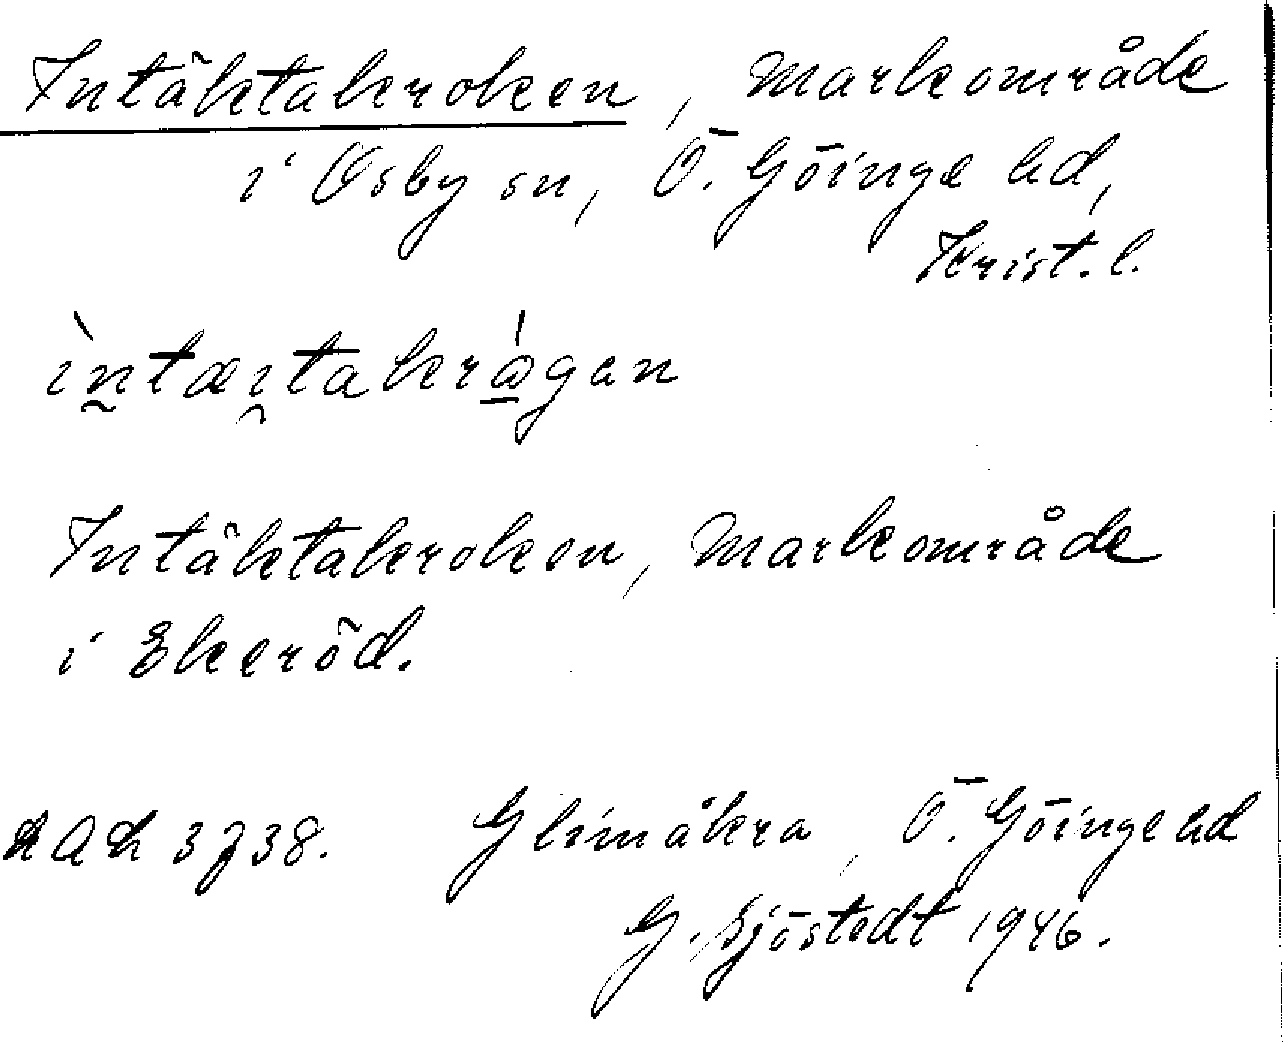 Intäktakroken, Markområde
i Osby sn, Ö. Göinge hd,
Krist. l.
ìntæıtakrágan
Intäktakroken, Markområde
i Ekeröd.
3738. Glimåkra, Ö. Göinge hd
G. Sjöstedt 1946.